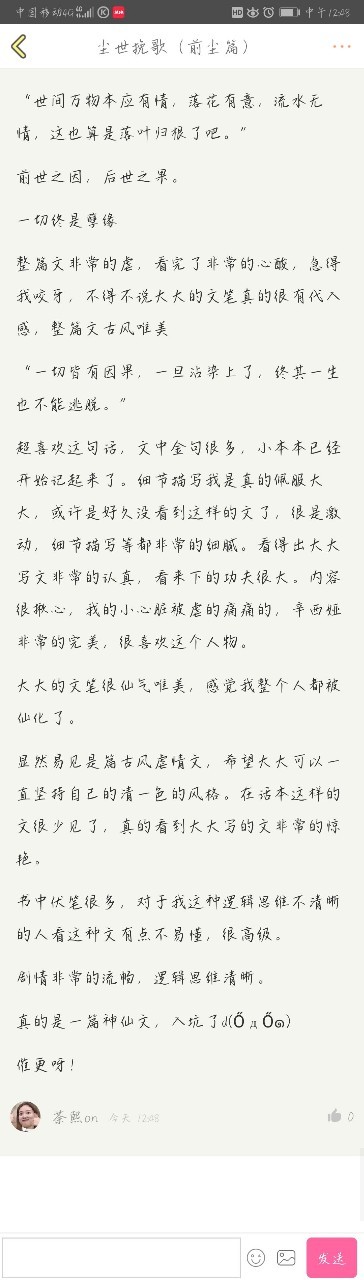 中国移动4G
HD
中午12:08
尘世挽歌（前尘篇）
“世间万物本应有情，落花有意，流水无
情，这也算是落叶归根了吧。”
前世之因，后世之果。
一切终是孽缘
整篇文非常的虐，看完了非常的心酸，急得
我咬牙，不得不说大大的文笔真的很有代入
感，整篇文古风唯美
“一切皆有因果，一旦沾染上了，终其一生
也不能逃脱。”
超喜欢这句话，文中金句很多，小本本已经
开始记起来了。细节描写我是真的佩服大
大，或许是好久没看到这样的文了，很是激
动，细节描写等都非常的细腻。看得出大大
写文非常的认真，看来下的功夫很大。内容
很揪心，我的小心脏被虐的痛痛的，辛西娅
非常的完美，很喜欢这个人物。
大大的文笔很仙气唯美，感觉我整个人都被
仙化了。
显然易见是篇古风虐情文，希望大大可以一
直坚持自己的清一色的风格。在话本这样的
文很少见了，真的看到大大写的文非常的惊
艳。
书中伏笔很多，对于我这种逻辑思维不清晰
的人看这种文有点不易懂，很高级。
剧情非常的流畅，逻辑思维清晰。
真的是一篇神仙文，入坑了d(Ő д Ő๑)
催更呀！
茶熙on 今天 12:08
0
发送